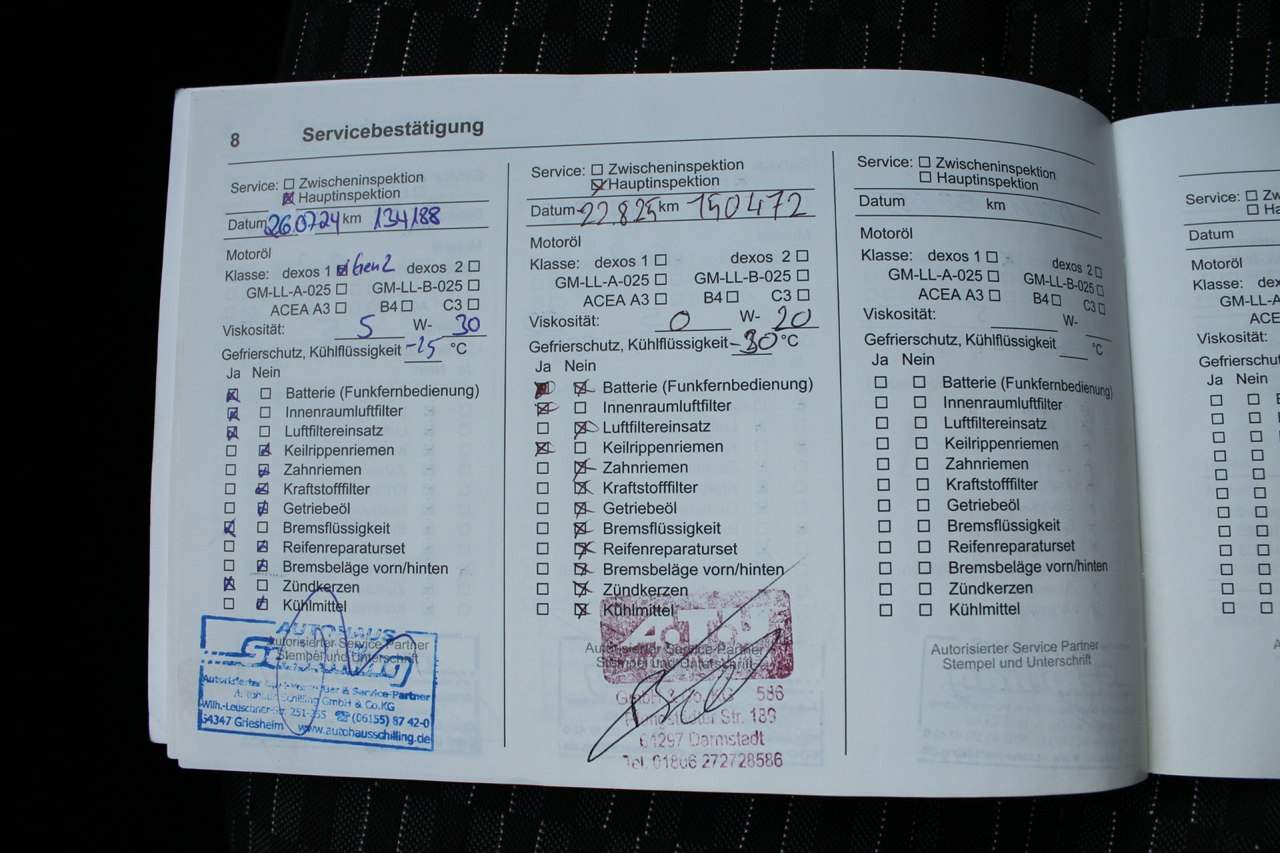 8 Servicebestätigung
Service: ☐ Zwischeninspektion
☒ Hauptinspektion
Datum 26.07.24 km 134188
Motoröl
Klasse: dexos 1 ☒ Gen2 dexos 2 ☐
GM-LL-A-025 ☐ GM-LL-B-025 ☐
ACEA A3 ☐ B4 ☐ C3 ☐
Viskosität: 5 W- 30
Gefrierschutz, Kühlflüssigkeit -25 °C
Ja Nein
☒ ☐ Batterie (Funkfernbedienung)
☒ ☐ Innenraumluftfilter
☒ ☐ Luftfiltereinsatz
☐ ☒ Keilrippenriemen
☐ ☒ Zahnriemen
☐ ☒ Kraftstofffilter
☐ ☒ Getriebeöl
☒ ☐ Bremsflüssigkeit
☐ ☒ Reifenreparaturset
☐ ☒ Bremsbeläge vorn/hinten
☒ ☐ Zündkerzen
☐ ☒ Kühlmittel
AUTOHAUS
Autorisierter Service Partner
Stempel und Unterschrift
Autorisierter & Service-Partner
Schilling GmbH & Co.KG
Wilh.-Leuschner-Str. 251-255 ☎ (06155) 87 42-0
64347 Griesheim www.autohausschilling.de
Service: ☐ Zwischeninspektion
☒ Hauptinspektion
Datum 22.8.25 km 150472
Motoröl
Klasse: dexos 1 ☐ dexos 2 ☐
GM-LL-A-025 ☐ GM-LL-B-025 ☐
ACEA A3 ☐ B4 ☐ C3 ☐
Viskosität: 0 W- 20
Gefrierschutz, Kühlflüssigkeit -30 °C
Ja Nein
☒ Batterie (Funkfernbedienung)
☒ ☐ Innenraumluftfilter
☐ ☒ Luftfiltereinsatz
☒ ☐ Keilrippenriemen
☐ ☒ Zahnriemen
☐ ☒ Kraftstofffilter
☐ ☒ Getriebeöl
☐ ☒ Bremsflüssigkeit
☐ ☒ Reifenreparaturset
☐ ☒ Bremsbeläge vorn/hinten
☐ ☒ Zündkerzen
☐ ☒ Kühlmittel
Autorisierter Service Partner
Stempel und Unterschrift
586
Str. 189
64297 Darmstadt
Tel. 01806 272728586
Service: ☐ Zwischeninspektion
☐ Hauptinspektion
Datum km
Motoröl
Klasse: dexos 1 ☐ dexos 2 ☐
GM-LL-A-025 ☐ GM-LL-B-025 ☐
ACEA A3 ☐ B4 ☐ C3 ☐
Viskosität: W-
Gefrierschutz, Kühlflüssigkeit °C
Ja Nein
☐ ☐ Batterie (Funkfernbedienung)
☐ ☐ Innenraumluftfilter
☐ ☐ Luftfiltereinsatz
☐ ☐ Keilrippenriemen
☐ ☐ Zahnriemen
☐ ☐ Kraftstofffilter
☐ ☐ Getriebeöl
☐ ☐ Bremsflüssigkeit
☐ ☐ Reifenreparaturset
☐ ☐ Bremsbeläge vorn/hinten
☐ ☐ Zündkerzen
☐ ☐ Kühlmittel
Autorisierter Service Partner
Stempel und Unterschrift
Service: ☐ Zw
☐ Ha
Datum
Motoröl
Klasse: dex
GM-LL-A
ACE
Viskosität:
Gefrierschut
Ja Nein